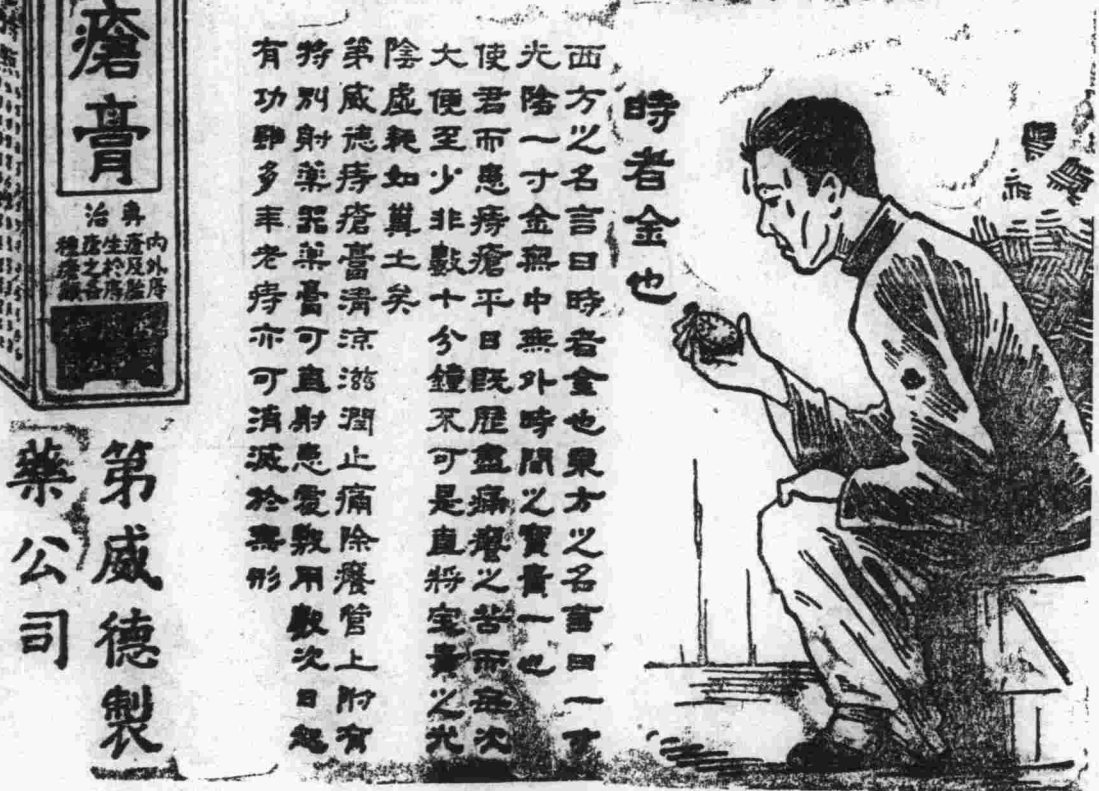 時者金也
西方之名言曰時者金也東方之名言曰一寸
光陰一寸金無中無外時間之寶貴一也
使君而患痔瘡平日既歷盡痛癢之苦而每次
大便至少非數十分鐘不可是直將寶貴之光
陰虛耗如糞土矣
第威德痔瘡膏清涼滋潤止痛除癢管上附有
特別射藥器藥膏可直射患處敷用數次日起
有功即多年老痔亦可消滅於無形
瘡膏
治鼻
內外痔
瘡及
生於
痔之各
種瘡
第威德製
藥公司